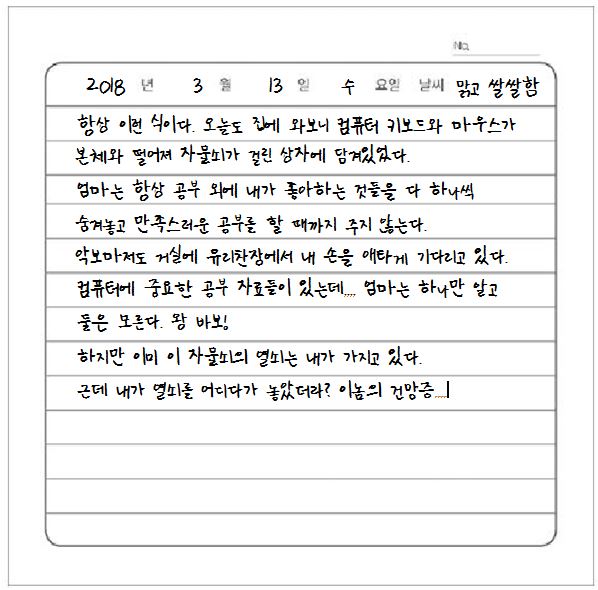 No.
2018 년 3 월 13 일 수 요일 날씨 맑고 쌀쌀함
항상 이런 식이다. 오늘도 집에 와보니 컴퓨터 키보드와 마우스가
본체와 떨어져 자물쇠가 걸린 상자에 담겨있었다.
엄마는 항상 공부 외에 내가 좋아하는 것들을 다 하나씩
숨겨놓고 만족스러운 공부를 할 때까지 주지 않는다.
악보마저도 거실에 유리찬장에서 내 손을 애타게 기다리고 있다.
컴퓨터에 중요한 공부 자료들이 있는데,,,, 엄마는 하나만 알고
둘은 모른다. 왕 바보!
하지만 이미 이 자물쇠의 열쇠는 내가 가지고 있다.
근데 내가 열쇠를 어디다가 놓았더라? 이놈의 건망증,,,,